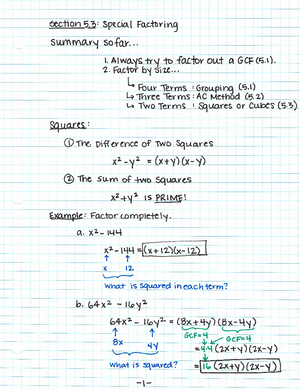 Section 5.3: Special Factoring
Summary so far...
1. Always try to factor out a GCF (5.1).
2. Factor by Size...
↳ Four Terms: Grouping (5.1)
↳ Three Terms: AC Method (5.2)
↳ Two Terms: Squares or Cubes (5.3)
Squares:
① The Difference of Two Squares
x² - y² = (x+y)(x-y)
② The Sum of two Squares
x² + y² is PRIME!
Example: Factor completely.
a. x² - 144
x² - 144 = (x+12)(x-12)
↑ ↑
x 12
What is squared in each term?
b. 64x² - 16y²
64x² - 16y² = (8x+4y)(8x-4y)
↑ ↑ GCF=4 GCF=4
8x 4y = 4·4 (2x+y)(2x-y)
What is squared? = 16 (2x+y)(2x-y)
-1-